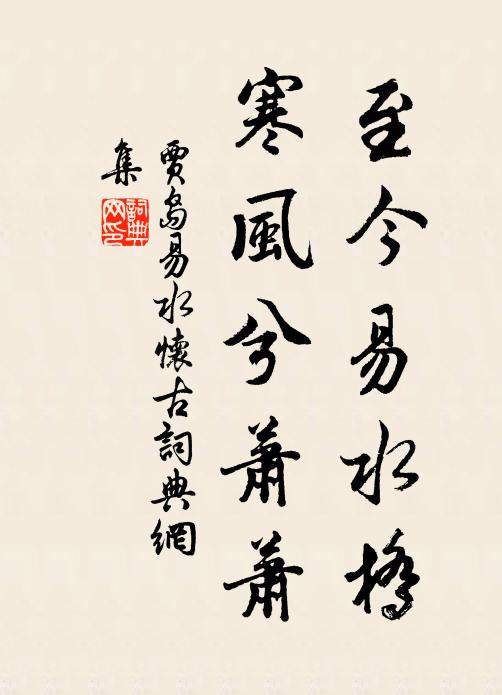 至今易水橋
寒風兮蕭蕭
賈島易水懷古詞典網
集
詞典網印